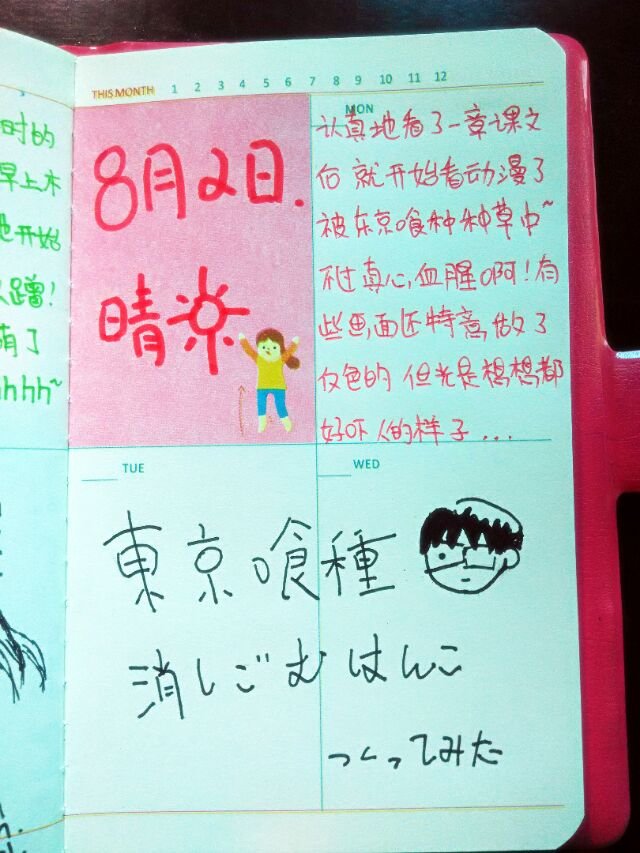 时的
早上木
也开始
人蹭!
萌了
hhhh~
THIS MONTH 1 2 3 4 5 6 7 8 9 10 11 12
8月2日.
晴
MON
认真地看了一章课文
后 就开始看动漫了
被东京喰种种草中~
不过真心血腥啊!有
些画面还特意做了
仅色的 但光是想想都
好吓人的样子...
TUE
WED
東京喰種
消しごむはんこ
つくってみた